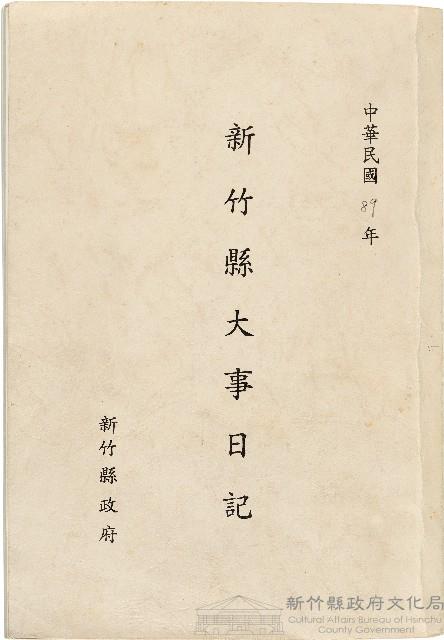 中華民國 89 年
新竹縣大事日記
新竹縣政府
新竹縣政府文化局
Cultural Affairs Bureau of Hsinchu
County Government